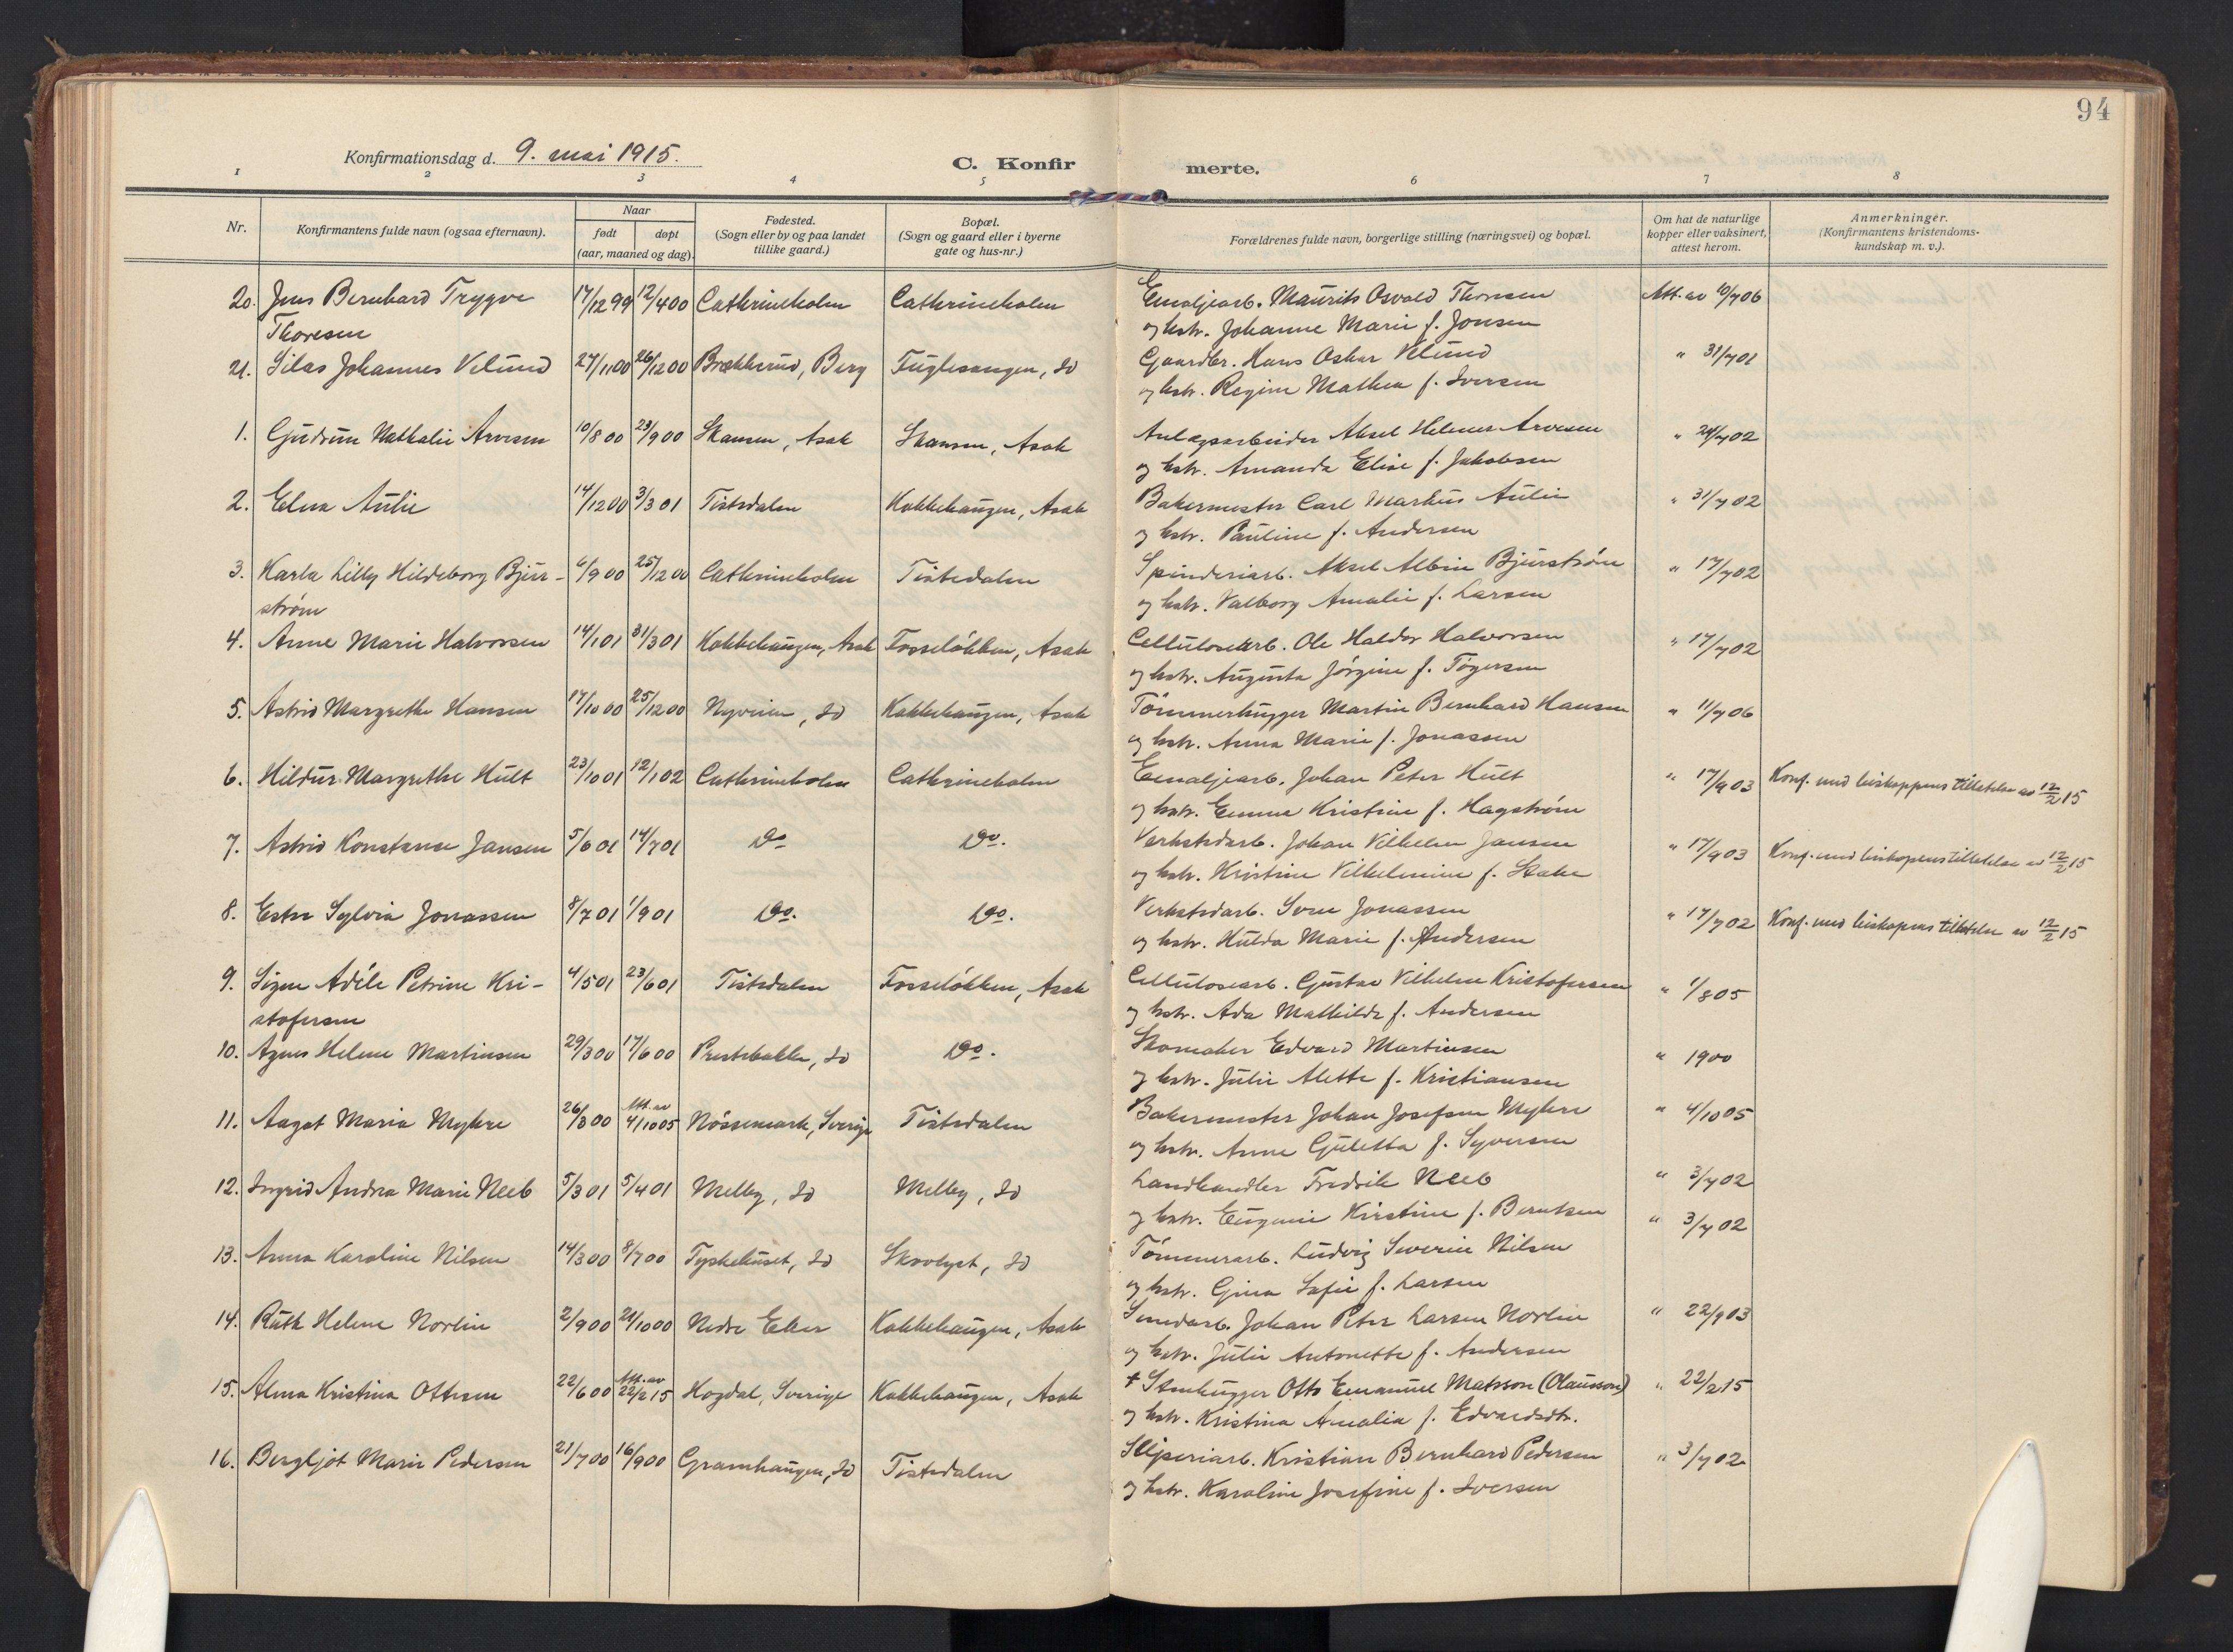 94
Konfirmationsdag d. 9. mai 1915.
C. Konfir merte.
1 2 3 4 5 6 7 8
Nr. Konfirmantens fulde navn (ogsaa efternavn). Naar født døpt (aar, maaned og dag). Fødested. (Sogn eller by og paa landet tillike gaard.) Bopæl. (Sogn og gaard eller i byerne gate og hus-nr.) Forældrenes fulde navn, borgerlige stilling (næringsvei) og bopæl. Om hat de naturlige kopper eller vaksinert, attest herom. Anmerkninger. (Konfirmantens kristendoms-kundskap m. v.).
20. Jens Bernhard Trygve 17/12 99 12/4 00 Cathrineholm Cathrineholm Emaljearb. Maurits Osvald Thoresen Att. av 10/7 06
Thoresen og hstr. Johanne Marie f. Jonsen
21. Silas Johannes Velund 27/11 00 26/12 00 Brækkerud, Berg Fuglesangen, Id Gaardbr. Hans Oskar Velund " 31/7 01
og hstr. Regine Mathea f. Iversen
1. Gudrun Nathalie Arvesen 10/8 00 23/9 00 Skansen, Asak Skansen, Asak Anlægsarbeider Aksel Helmer Arvesen " 24/7 02
og hstr. Amanda Elise f. Jakobsen
2. Elna Aulie 14/12 00 3/3 01 Tistedalen Kokkehaugen, Asak Bakermester Carl Markus Aulie " 31/7 02
og hstr. Pauline f. Andersen
3. Karla Lilly Hildeborg Bjur- 6/9 00 25/12 00 Cathrineholm Tistedalen Spinderiarb. Aksel Albin Bjurstrøm " 17/7 02
strøm og hstr. Valborg Amalie f. Larsen
4. Anne Marie Halvorsen 14/1 01 31/3 01 Kokkehaugen, Asak Fosseløkken, Asak Cellulosearb. Ole Haldor Halvorsen " 17/7 02
og hstr. Augusta Jørgine f. Tøgersen
5. Astrid Margrethe Hansen 17/10 00 25/12 00 Nyveien, Id Kokkehaugen, Asak Tømmerhugger Martin Bernhard Hansen " 11/7 06
og hstr. Anna Marie f. Jonassen
6. Hildur Margrethe Hult 23/10 01 12/1 02 Cathrineholm Cathrineholm Emaljearb. Johan Peter Hult " 17/9 03 Konf. med biskoppens tilladelse av 12/2 15
og hstr. Emma Kristine f. Hagstrøm
7. Astrid Konstanse Jansen 5/6 01 14/7 01 Do Do. Verkstedarb. Johan Vilhelm Jansen " 17/9 03 Konf. med biskopens tilladelse av 12/2 15
og hstr. Kristine Vilhelmine f. Stake
8. Ester Sylvia Jonassen 8/7 01 1/9 01 Do. Do. Verkstedarb. Sven Jonassen " 17/7 02 Konf. med biskopens tilladelse av 12/2 15
og hstr. Hulda Marie f. Andersen
9. Signe Adéle Petrine Kri- 4/5 01 23/6 01 Tistedalen Fosseløkken, Asak Cellulosearb. Gustav Vilhelm Kristofersen " 1/8 05
stofersen og hstr. Ada Mathilde f. Andersen
10. Agnes Helene Martinsen 29/3 00 17/6 00 Prestebakke, Id Do. Skomaker Edvard Martinsen " 1900
og hstr. Julie Alette f. Kristiansen
11. Aagot Maria Myhre 26/3 00 Att. av 4/10 05 Nössemark, Sverige Tistedalen Bakermester Johan Josefsen Myhre " 4/10 05
og hstr. Anne Guletta f. Syversen
12. Ingrid Andrea Marie Neeb 5/3 01 5/4 01 Melby, Id Melby, Id Landhandler Fredrik Neeb " 3/7 02
og hstr. Eugenie Kirstine f. Berntsen " 3/7 02
13. Anna Karoline Nilsen 14/3 00 8/7 00 Tyskehuset, Id Skovlyst, Id Tømmerarb. Ludvig Severin Nilsen
og hstr. Gina Sofie f. Larsen
14. Ruth Helene Norlin 2/9 00 21/10 00 Nedre Eker Kokkehaugen, Asak Smedarb. Johan Peter Larsen Norlin " 22/9 03
og hstr. Julie Antonette f. Andersen
15. Alma Kristina Ottesen 22/6 00 Att. av 22/2 15 Hogdal, Sverige Kokkehaugen, Asak † Stenhugger Otto Emanuel Matsson (Olausson) " 22/2 15
og hstr. Kristina Amalia f. Edvardsdtr.
16. Bergljot Marie Pedersen 21/7 00 16/9 00 Gramhaugen, Id Tistedalen Sliperiarb. Kristian Bernhard Pedersen " 3/7 02
og hstr. Karoline Josefine f. Iversen